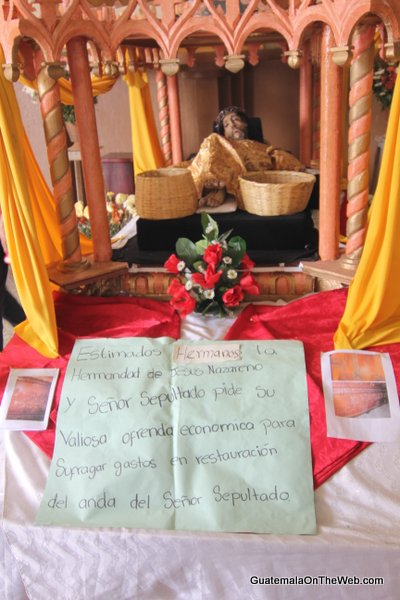 Estimados Hermanos la
Hermandad de Jesús Nazareno
y Señor Sepultado pide su
Valiosa ofrenda economica para
Sufragar gastos en restauración
del anda del Señor Sepultado.
GuatemalaOnTheWeb.com